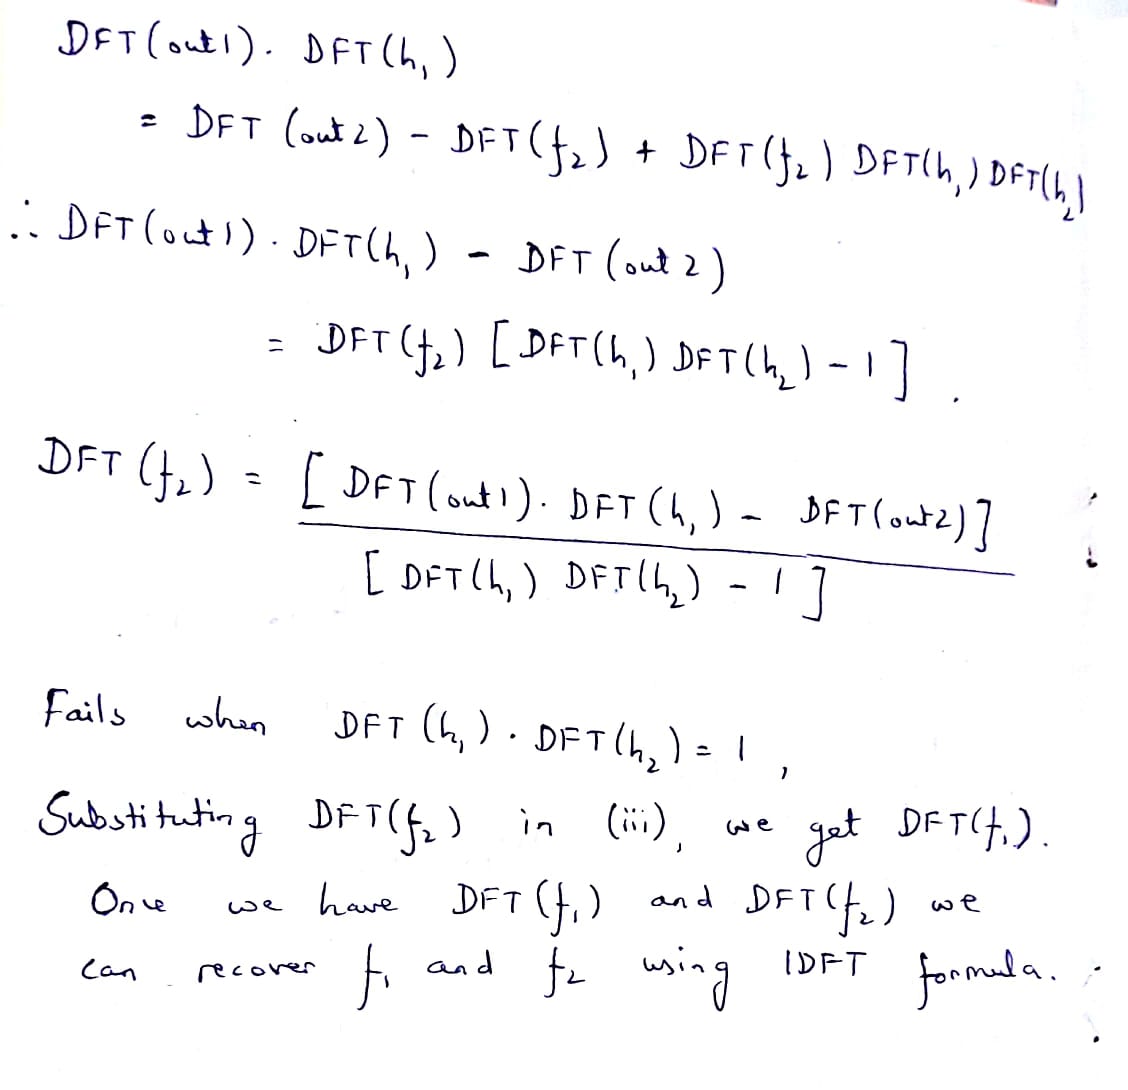 DFT(out1). DFT(h₁)
= DFT (out2) - DFT(f₂) + DFT(f₂) DFT(h₁) DFT(h₂)
∴ DFT(out1). DFT(h₁) - DFT(out 2)
= DFT(f₂) [DFT(h₁) DFT(h₂) - 1].
DFT(f₂) = [DFT(out1). DFT(h₁) - DFT(out2)]
[DFT(h₁) DFT(h₂) - 1]
Fails when DFT(h₁). DFT(h₂) = 1,
Substituting DFT(f₂) in (iii), we get DFT(f₁).
Once we have DFT(f₁) and DFT(f₂) we
can recover f₁ and f₂ using IDFT formula.